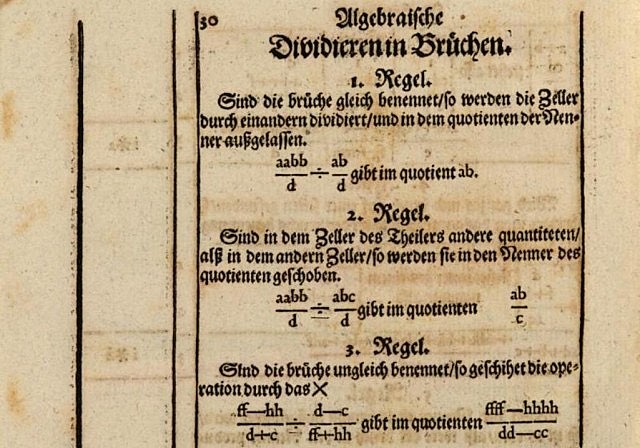 30 Algebraische
Dividieren in Brüchen.
1. Regel.
Sind die brüche gleich benennet/so werden die Zeller
durch einandern dividiert/und in dem quotienten der Nen-
ner außgelassen.
aabb/d ÷ ab/d gibt im quotient ab.
2. Regel.
Sind in dem Zeller des Theilers andere quantiteten/
alß in dem andern Zeller/so werden sie in den Nenner des
quotienten geschoben.
aabb/d ÷ abc/d gibt im quotienten ab/c
3. Regel.
SInd die brüche ungleich benennet/so geschihet die ope-
ration durch das ×
ff—hh/d+c ÷ d—c/ff+hh gibt im quotienten ffff—hhhh/dd—cc